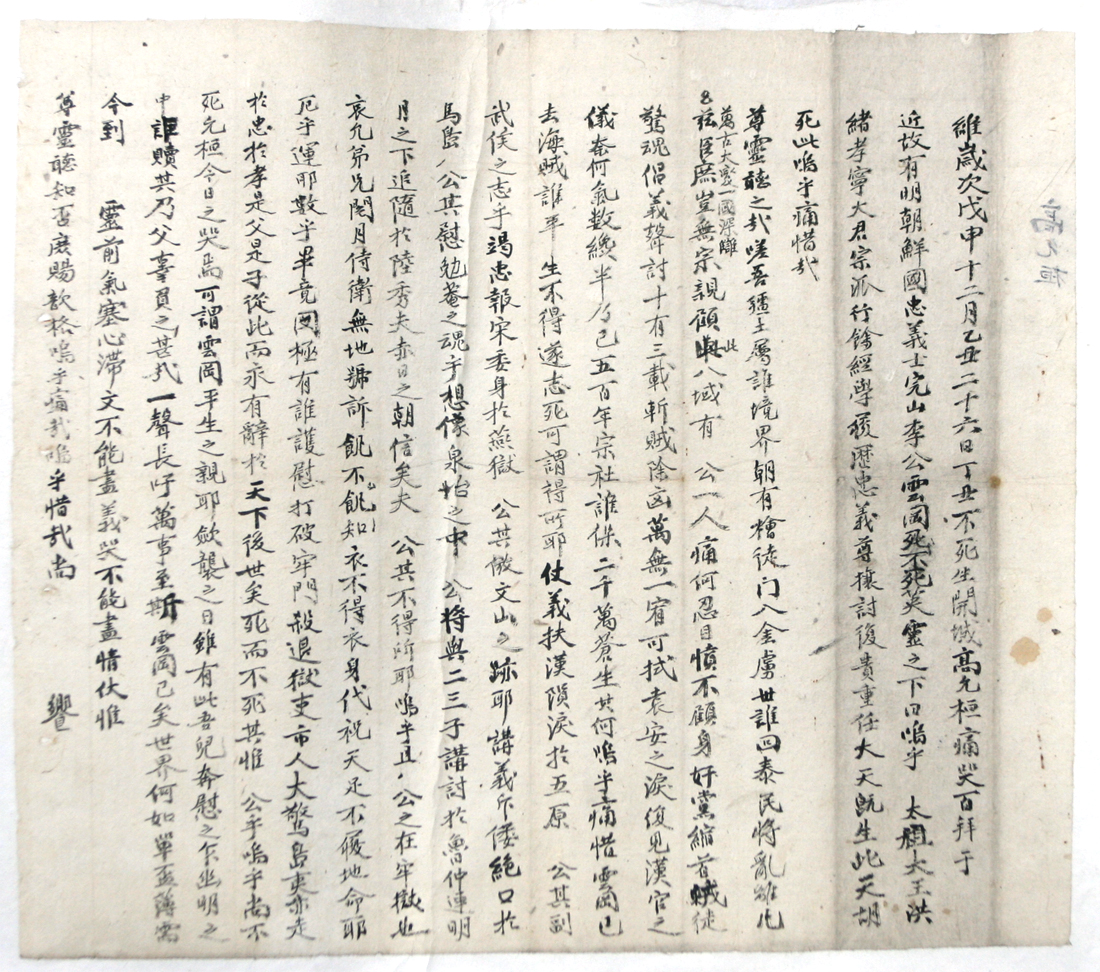 高允桓
維歲次戊申十二月乙丑二十六日丁丑不死生開城高允桓痛哭百拜于
近故有明朝鮮國忠義士完山李公雲岡死不死英靈之下曰嗚乎 太祖大王洪
緒孝寧大君宗派行餘經學後歷忠義尊攘討復貴重任大天旣生此天胡
死此嗚乎痛惜哉
尊靈聽之哉嗟吾疆土屬誰境界朝有檜徒門入金虜世誰回泰民將亂離凡
我臣庶豈無宗親顧此八域有 公一人痛何忍目憤不顧身奸黨縮首賊徒
萬古大變一國深讎
驚魂倡義聲討十有三載斬賊除凶萬無一宥可拭袁安之淚復見漢官之
儀奈何氣數纔半了已五百年宗社誰保二千萬蒼生其何嗚乎痛惜雲岡已
去海賊誰平 生不得遂志死可謂得所耶仗義扶漢隕淚於五原 公其副
武侯之志乎竭忠報宋委身於燕獄 公其倣文山之跡耶講義斥倭絶口於
馬島 公其慰勉菴之魂乎想像泉坮之中 公將與二三子講討於魯仲連明
月之下追隨於陸秀夫赤日之朝信矣夫 公其不得所耶嗚乎且 公之在牢獄也
哀允弟兄閱月侍衛無地號訴飢不飢知衣不得衣身代祝天足不履地命耶
厄乎運耶數乎畢竟罔極有誰護慰打破牢門殺退獄吏市人大驚島夷亦走
於忠於孝是父是子從此而永有辭於天下後世矣死而不死其惟 公乎嗚乎尚不
死允桓今日之哭焉可謂雲岡平生之親耶歛襲之日雖有此吾兒奔慰之乍幽明之
中誰贖其乃父辜負之甚哉一聲長吁萬事至斯雲岡已矣世界何如單盃薄需
今到 靈前氣塞心滯文不能盡義哭不能盡情伏惟
尊靈聽知否庶賜歆格嗚乎痛哉嗚乎惜哉尚 饗